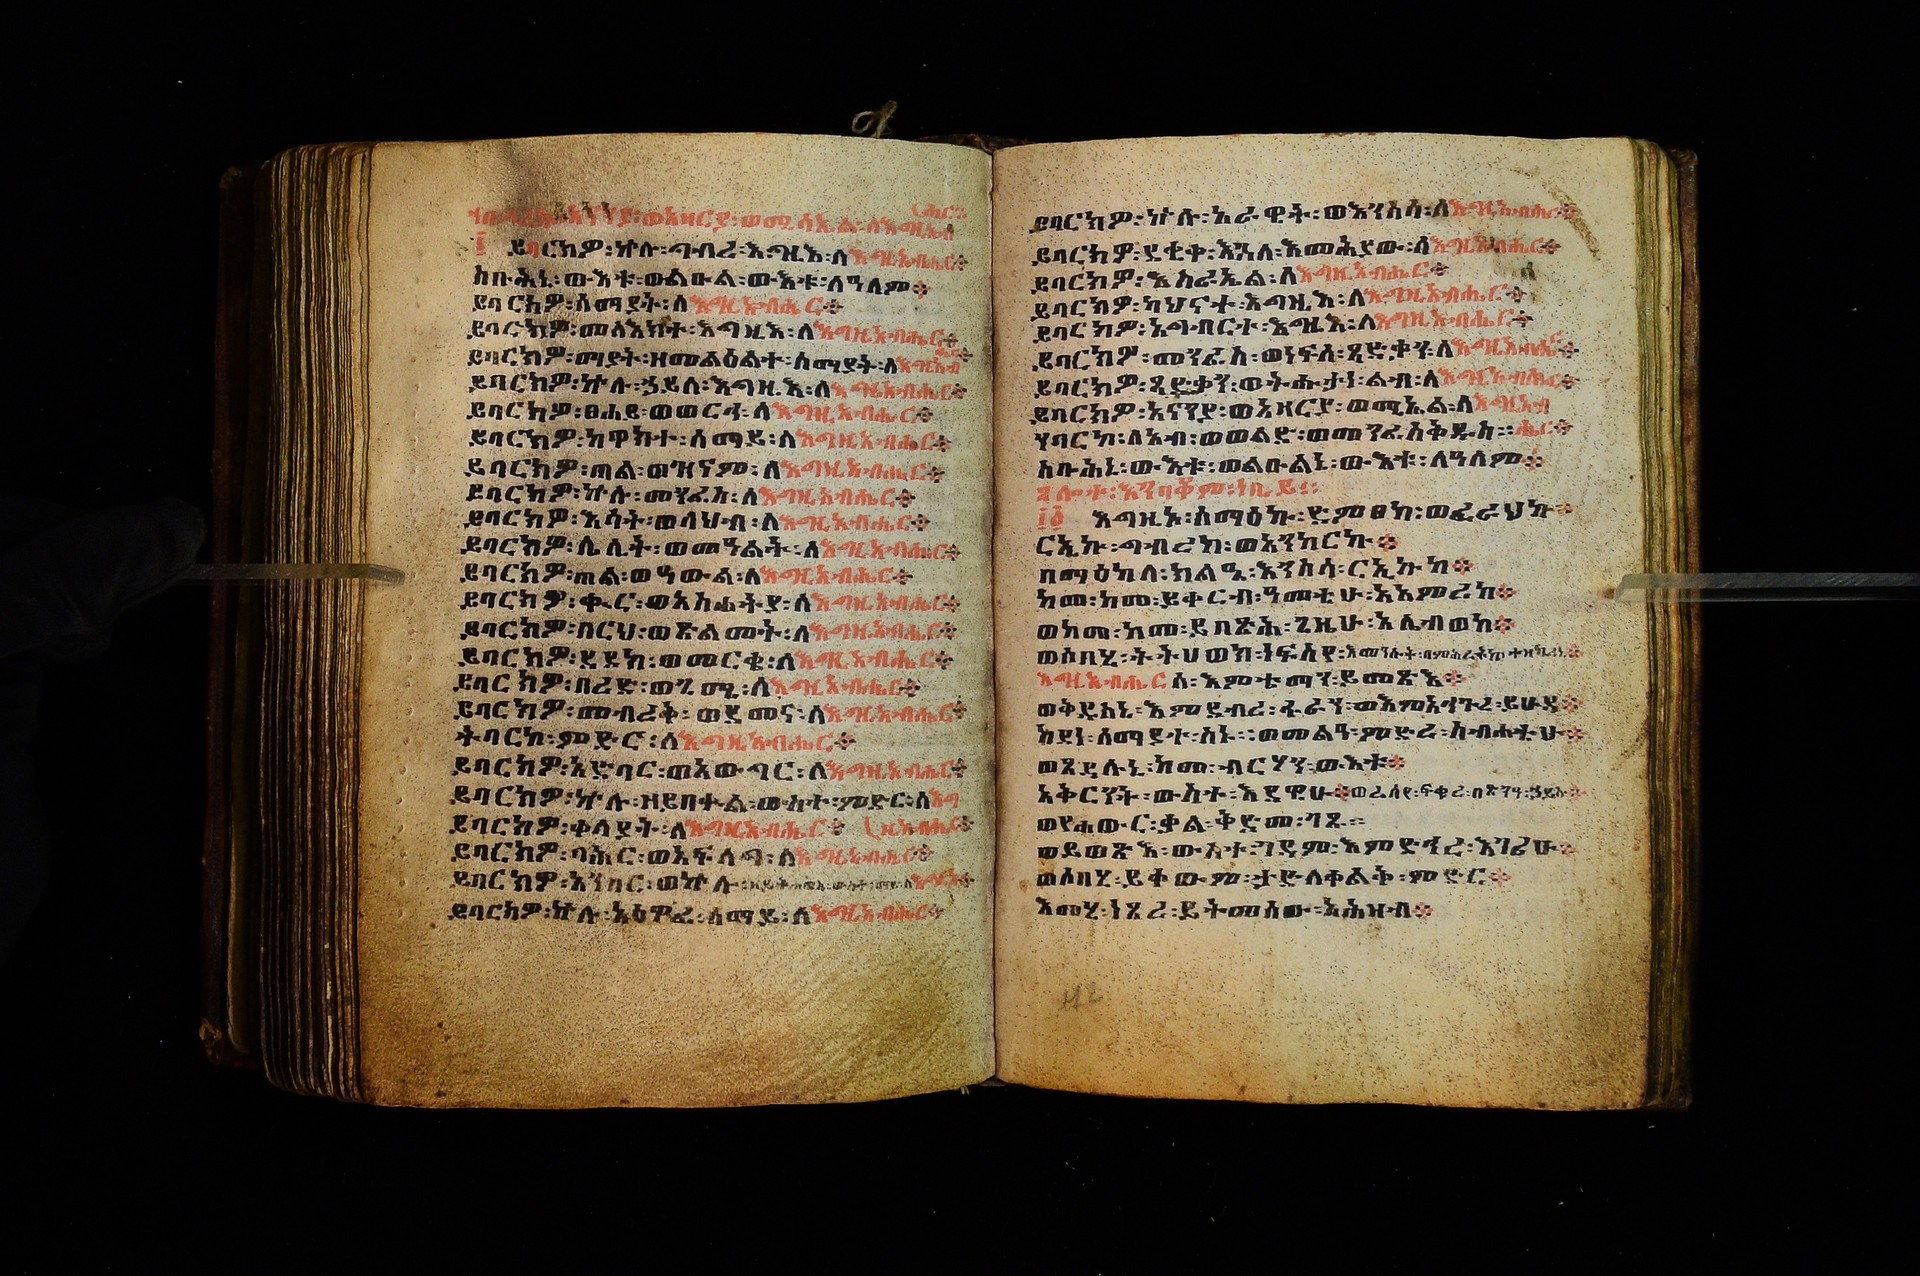 ፲ ይባርክዎ፡ኵሉ፡ግብረ፡እግዚእ፡ለእግዚአብሔር፨
ስቡሕኒ፡ውእቱ፡ወልዑል፡ውእቱ፡ለዓለም፨
ይባርክዎ፡ሰማያት፡ለእግዚአብሔር፨
ይባርክዎ፡መላእክተ፡እግዚእ፡ለእግዚአብሔር፨
ይባርክዎ፡ማያት፡ዘመልዕልተ፡ሰማያት፡ለእግዚአብሔር፨
ይባርክዎ፡ኵሉ፡ኃይለ፡እግዚእ፡ለእግዚአብሔር፨
ይባርክዎ፡ፀሐይ፡ወወርኅ፡ለእግዚአብሔር፨
ይባርክዎ፡ከዋክተ፡ሰማይ፡ለእግዚአብሔር፨
ይባርክዎ፡ጠል፡ወዝናም፡ለእግዚአብሔር፨
ይባርክዎ፡ኵሉ፡መንፈስ፡ለእግዚአብሔር፨
ይባርክዎ፡እሳት፡ወላህብ፡ለእግዚአብሔር፨
ይባርክዎ፡ሌሊት፡ወመዓልት፡ለእግዚአብሔር፨
ይባርክዎ፡ጠል፡ወ ለእግዚአብሔር፨
ይባርክዎ፡ቍር፡ወአስሐትያ፡ለእግዚአብሔር፨
ይባርክዎ፡በርህ፡ወጽልመት፡ለእግዚአብሔር፨
ይባርክዎ፡ ለእግዚአብሔር፨
ይባርክዎ፡በረድ፡ወጊሜ፡ለእግዚአብሔር፨
ይባርክዎ፡መብረቅ፡ወደመና፡ለእግዚአብሔር፨
ትባርክ፡ምድር፡ለእግዚአብሔር፨
ይባርክዎ፡አድባር፡ወአውግር፡ለእግዚአብሔር፨
ይባርክዎ፡ኵሉ፡ዘይበቍል፡ውስተ፡ምድር፡ለእግ
ይባርክዎ፡ቀላያት፡ለእግዚአብሔር፨ (ዚአብሔር፨
ይባርክዎ፡ባሕር፡ወአፍላግ፡ለእግዚአብሔር፨
ይባርክዎ፡አንበር፡ወኵሉ፡
ይባርክዎ፡ኵሉ፡አዕዋፈ፡ሰማይ፡ለእግዚአብሔር፨
ይባርክዎ፡ኵሉ፡አራዊት፡ወእንስሳ፡ለእግዚአብሔር፨
ይባርክዎ፡ደቂቀ፡እጓለ፡እመሕያው፡ለእግዚአብሔር፨
ይባርክዎ፡እስራኤል፡ለእግዚአብሔር፨
ይባርክዎ፡ካህናተ፡እግዚእ፡ለእግዚአብሔር፨
ይባርክዎ፡አግብርተ፡እግዚእ፡ለእግዚአብሔር፨
ይባርክዎ፡መንፈስ፡ወነፍሰ፡ጻድቃን፡ለእግዚአብሔር፨
ይባርክዎ፡ጻድቃን፡ወትሑታነ፡ልብ፡ለእግዚአብሔር፨
ይባርክዎ፡አናንያ፡ወአዛርያ፡ወሚሳኤል፡ለእግዚአብ
ንባርኮ፡ለአብ፡ወወልድ፡ወመንፈስቅዱስ። ሔር፨
ስቡሕኒ፡ውእቱ፡ወልዑልኒ፡ውእቱ፡ለዓለም፨
ጸሎተ፡እንባቆም፡ነቢይ፡፡
፲፩ እግዚኦ፡ሰማዕኩ፡ድምፀከ፡ወፈራህኩ፨
ርኢኩ፡ግብረከ፡ወአንከርኩ፨
በማዕከለ፡ክልዔ፡እንስሳ፡ርኢኩከ፨
ከመ፡ከመ፡ይቀርብ፡ዓመቲሁ፡አአምረከ፨
ወከመ፡ከመ፡ይበጽሕ፡ጊዜሁ፡እሌብወከ፨
ወሶበሂ፡ትትሀወክ፡ነፍስየ፡
እግዚአብሔርሰ፡እምቴማን፡ይመጽእ፨
ወቅዱስኒ፡እምደብረ፡ፋራን፡
ከደነ፡ሰማያተ፡ ወመልዓ፡ምድረ፡ስብሐቲሁ፨
ወጸዳሉኒ፡ከመ፡ብርሃን፡ውእቱ፨
አቅርንት፡ውስተ፡እደዊሁ፨
ወየሐውር፡ቃል፡ቅድመ፡ገጹ።
ወይወጽእ፡ውስተ፡ገዳም፡ እግሪሁ፨
ወሶበሂ፡ይቀውም፡ታድለቀልቅ፡ምድር፨
እመሂ፡ነጸረ፡ይትመሰው፡አሕዛብ፨